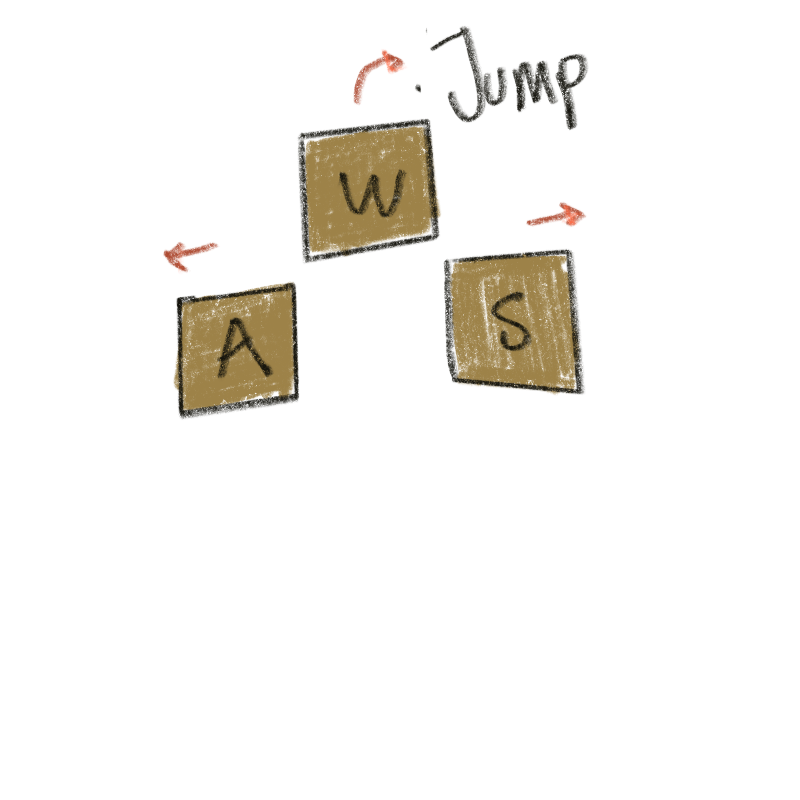 Jump
W
A
S